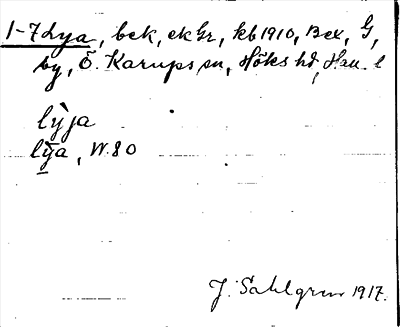 1-7 Lya, bek, ek Gr, kb 1910, Bex, G,
by, Ö. Karups sn, Höks hd, Hall. l
lȳja
lȳa, W. 80
J. Sahlgren 1917.